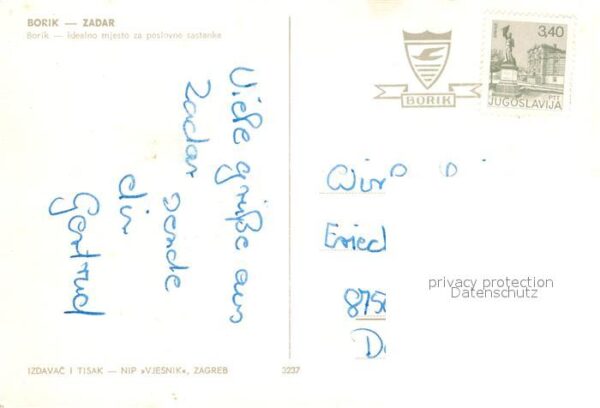 BORIK — ZADAR
Borik — idealno mjesto za poslovne sastanke
BORIK
3,40
PTT
JUGOSLAVIJA
Viele grüße aus
Zadar sende
dir
Gertrud
privacy protection
Datenschutz
IZDAVAČ I TISAK — NIP »VJESNIK«, ZAGREB
3237